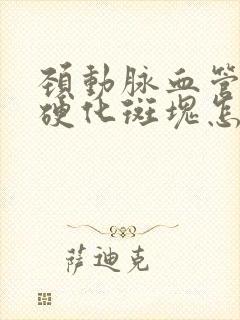 頚動脉血管
硬化斑塊怎
薩迪克